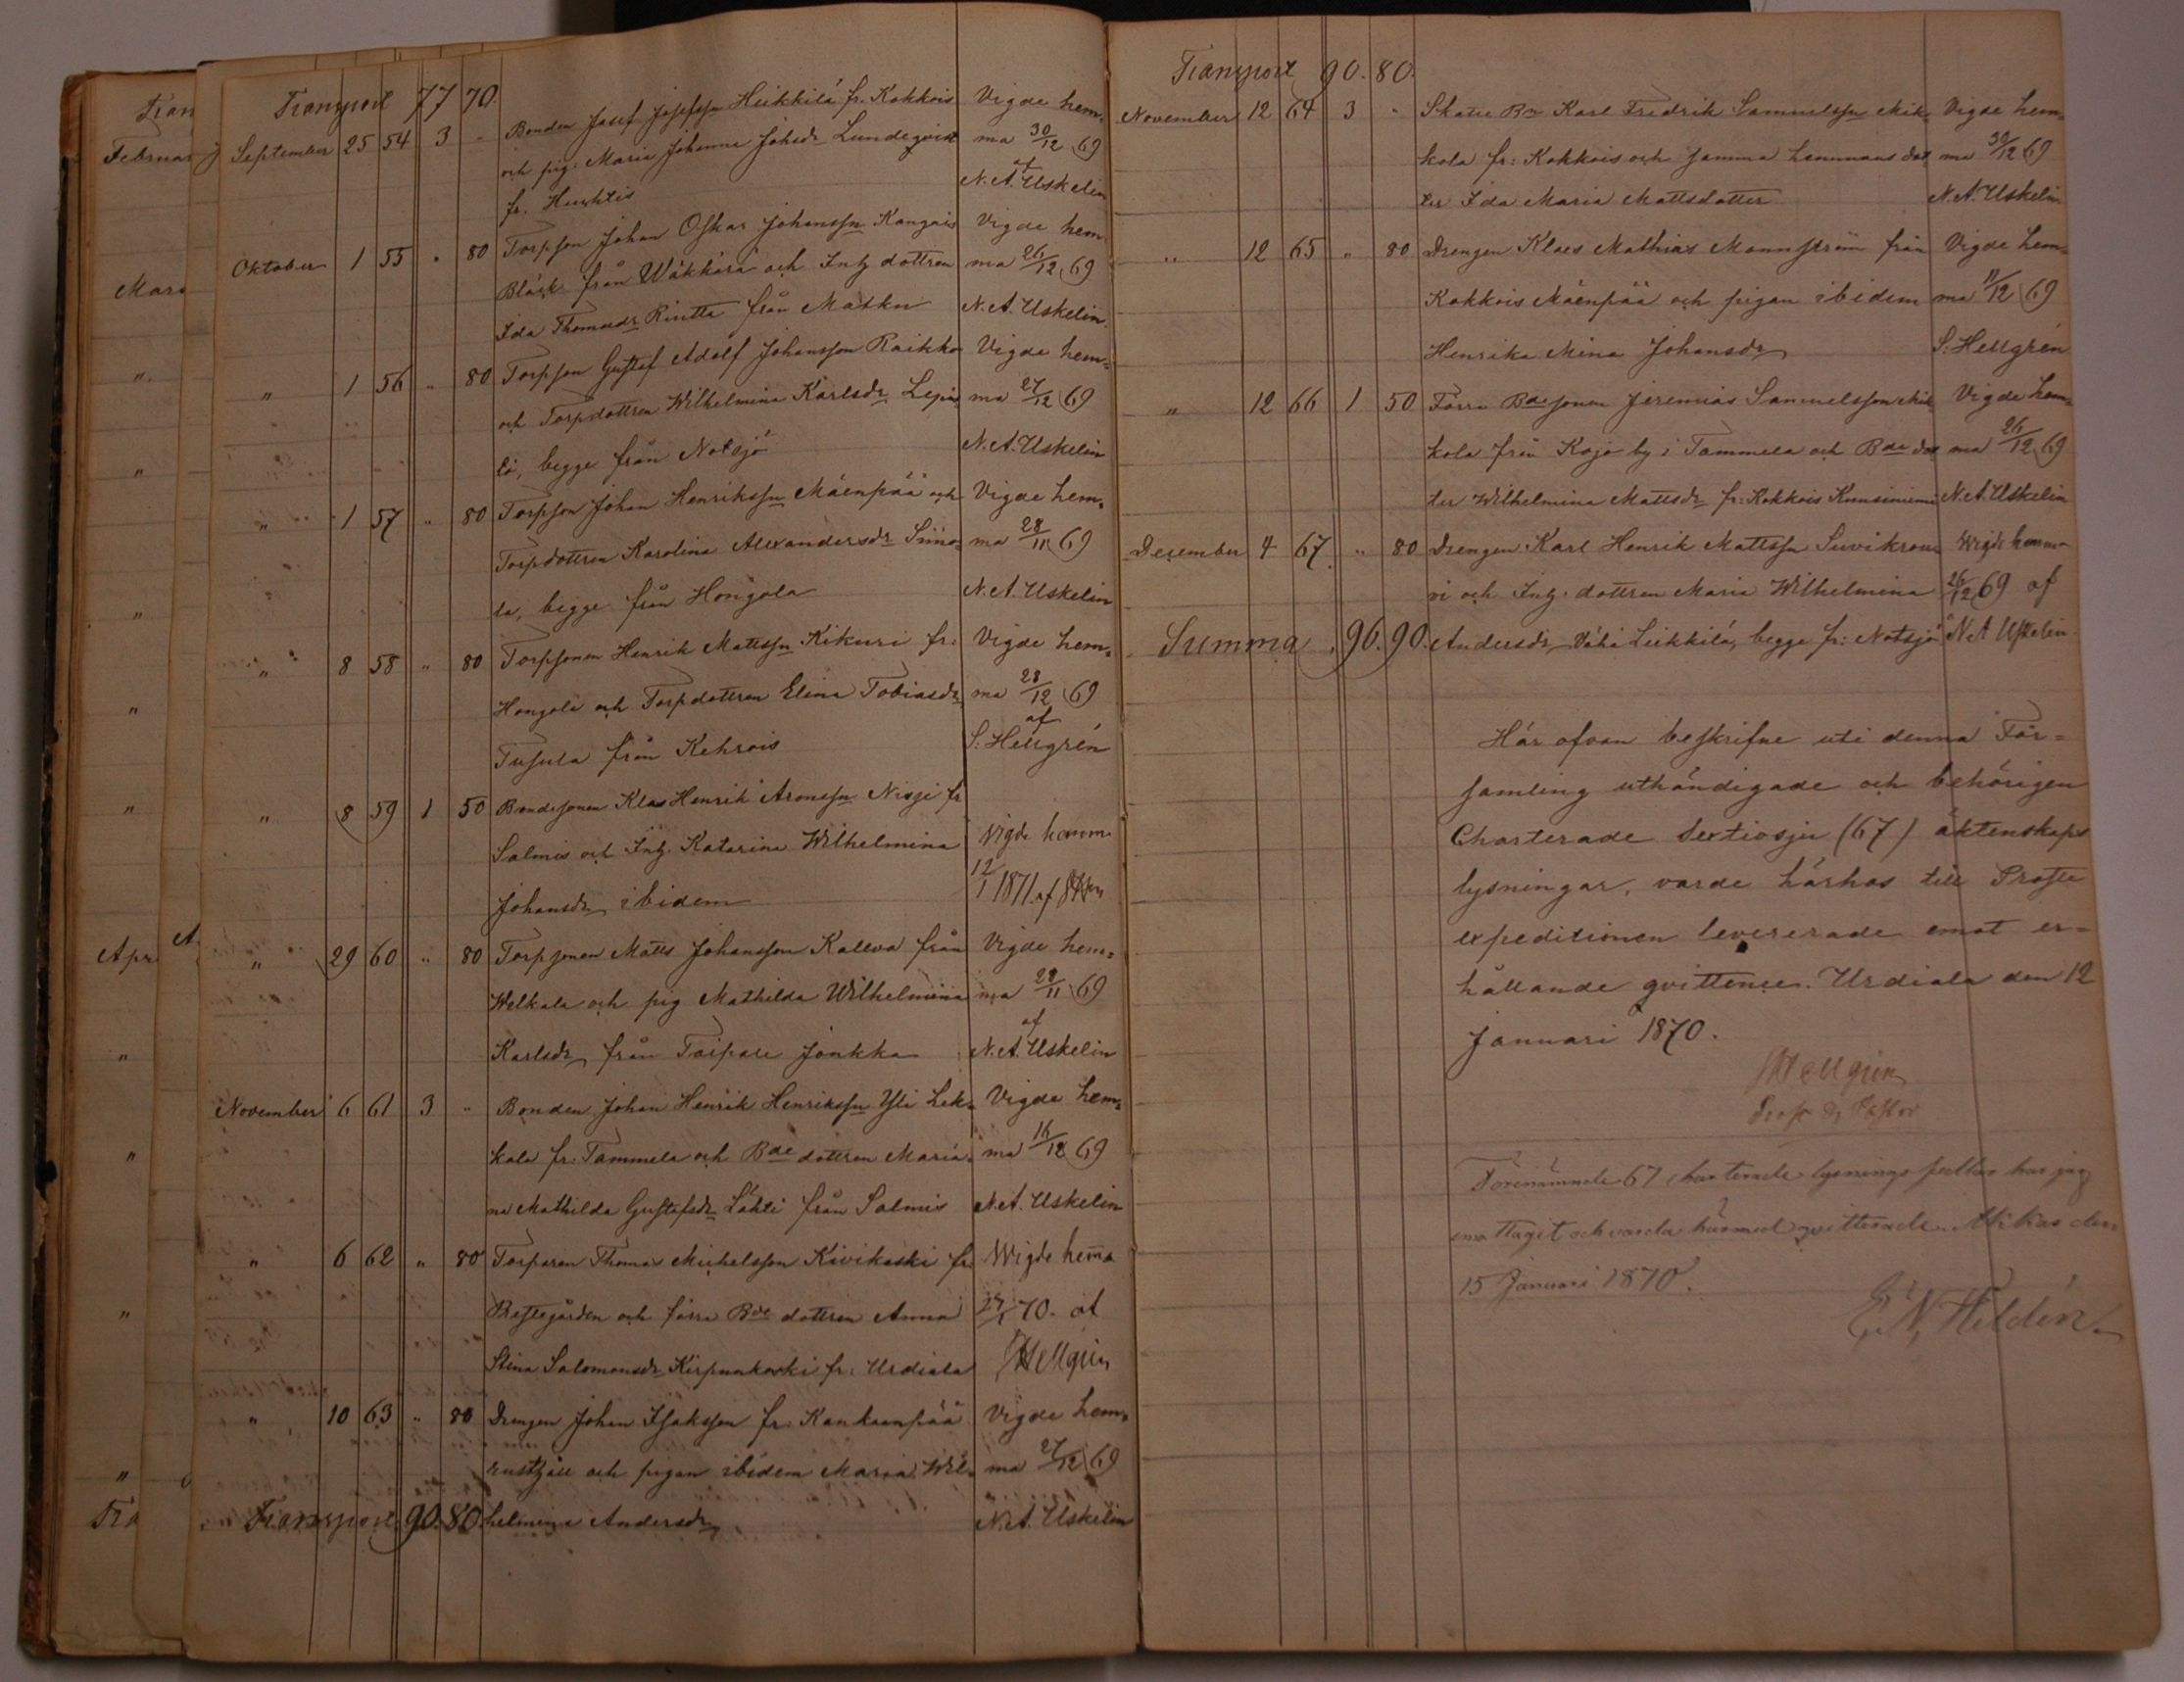 Transport 77 70
September 25 54 3 - Bonden Josef Josefsson Heikkilä fr. Kokkois Vigde hem=
och pig. Maria Johanna Johsdr Lundeqvist ma 30/12 69
fr. Huhtis af N. A. Uskelin
Oktober 1 55 " 80 Torpson Johan Oskar Johansson Kangais Vigde hem
Bläck från Wäkkärä och Inh dottren ma 26/12 69
Ida Thomasdr Rintta från Matku N. A. Uskelin.
" 1 56 " 80 Torpson Gustaf Adolf Johansson Raikko Vigde hem=
och Torpdottren Wilhelmina Karlsdr Lepis, ma 27/12 69
tö, begge från Notsjö N. A. Uskelin
" 1 57 " 80 Torpson Johan Henriksson Mäenpää och Vigde hem=
Torpdottren Karolina Alexandersdr Simo= ma 28/11 69
la, begge från Hongola N. A. Uskelin
" 8 58 " 80 Torpsonen Henrik Mattsson Kikuri fr: Vigde hem=
Hongola och Torpdottren Elina Tobiasdr ma 28/12 69
Tusula från Kehrois af S: Hellgrén
" 8 59 1 50 Bondesonen Klas Henrik Aronsson fr
Salmis och Inh. Katarina Wilhelmina Vigde hemma
Johansdr ibidem 12/1 1871 af
" 29 60 " 80 Torpsonen Matts Johansson Kalleva från Vigde hem=
Welkala och pig Mathilda Wilhelmina ma 28/11 69
Karlsdr från Toipare Jonkka af N. A. Uskelin
November 6 61 3 " Bonden Johan Henrik Henriksson Yli Lek= Vigde hem=
kala fr. Tammela och Bde dottren Maria= ma 16/12 69
na Mathilda Gustafsdr Lahti från Salmis N. A. Uskelin
" 6 62 " 80 Torparen Thomas Michelsson Kivikoski fr Wigde hemma
Prestgården och förra Bde dottren Anna 27/1 70. af
Stina Salomonsdr fr: Urdiala Hellgrén
" 10 63 " 80 Drengen Johan Isaksson fr: Kankaanpää Vigde hem=
rusthåll och pigan ibidem Maria Wil= ma 27/12 69
Transport 90. 80. helmina Andersdr N. A. Uskelin
Transport 90. 80.
November 12 64 3 " Skatte Bn Karl Fredrik Samuelsson Mik= Vigde hem=
kola fr: Kokkois och samma hemmans dot ma 30/12 69
ter Ida Maria Mattsdotter N. A. Uskelin
" 12 65 " 80 Drengen Klaes Mathias Mannström från Vigde hem=
Kokkois Mäenpää och pigan ibidem ma 11/12 69
Henrika Mina Johansdr S: Hellgrén
" 12 66 1 50 Förra Bdesonen Jeremias Samuelsson Mik Vigde hem=
kola från Kojo by i Tammela och Bde dot ma 26/12 69
ter Wilhelmina Mattsdr fr: Kokkois Kuusiniemi N. A. Uskelin
December 4 67. " 80 Drengen Karl Henrik Mattsson Wigde hemma
vi och Inh. dottren Maria Wilhelmina 26/12 69 af
Summa . 96. 90. Andersdr Vähä Leikkilä, begge fr: Notsjö N A Uskelin
Här ofvan beskrifne uti denna För=
samling uthändigade och behörigen
Charterade Sextiosju (67) äktenskaps
lysningar, varde härhos till Proste
expeditionen levererade emot er=
hållande qvittence. Urdiala den 12
Januari 1870.
Hellgrén
Prost & Pastor
Förenämnde 67 charterade lysnings sedlar har jag
emottagit och varda härmed qvitterade. Akkas den
15 Januari 1870.
E. N. Heldén